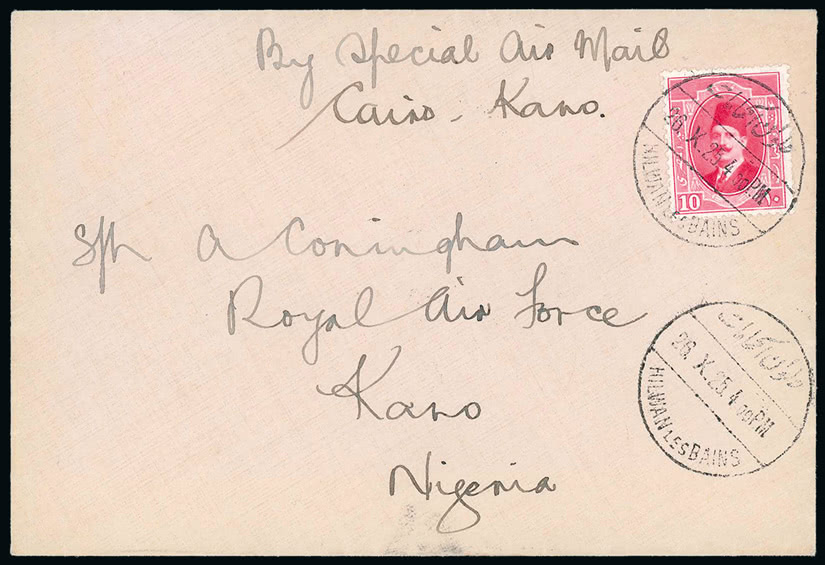 By Special Air Mail
Cairo - Kano.
26.X.25.4 00PM
HILWAN LES BAINS
10
A Coningham
Royal Air Force
Kano
Nigeria
26.X.25.4 00PM
HILWAN LES BAINS